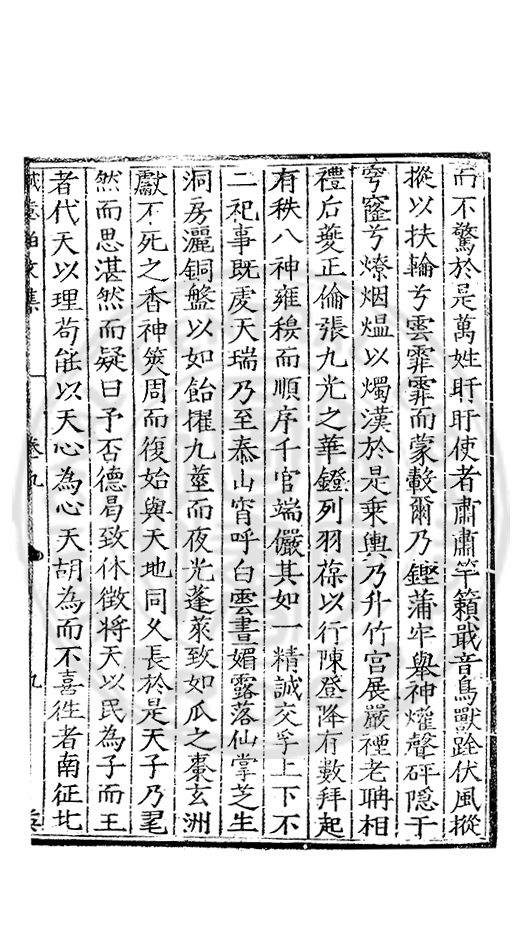 而不驚於是萬姓盱盱使者肅肅竽籟戢音鳥獸跧伏風摐
摐以扶輪兮雲霏霏而蒙轂爾乃鏗蒲牢舉神爟聲砰隠于
穹窿兮燎烟熅以燭漢於是乗輿乃升竹宫展嚴禋老聃相
禮后夔正倫張九光之華鐙列羽葆以行陳登降有數拜起
有秩八神雍穆而順序千官端儼其如一精誠交孚上下不
二祀事既虔天瑞乃至泰山宵呼白雲晝媚露落仙掌芝生
洞房灑銅盤以如飴擢九莖而夜光蓬萊致如瓜之棗玄洲
獻不死之香神筴周而復始與天地同乆長於是天子乃寉
然而思湛然而疑曰予否德曷致休徴將天以民為子而王
者代天以理苟能以天心為心天胡為而不喜徃者南征北
誠意伯文集 卷九 九